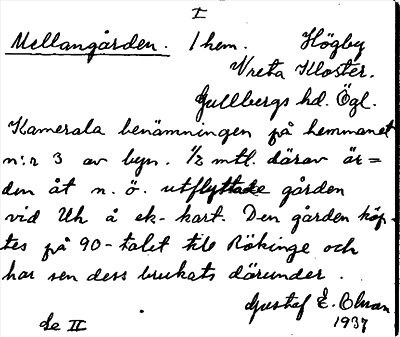 I
Mellangården. 1 hem. Högby
Vreta Kloster.
Gullbergs hd. Ögl.
Kamerala benämningen på hemmanet
n:r 3 av byn. 1/2 mtl. därav är=
den åt n. ö. utflyttade gården
vid Uh å ek-kart. Den gården köp-
tes på 90-talet till Rökinge och
har sen dess brukats därunder.
Gustaf E. Olman
1937
se II